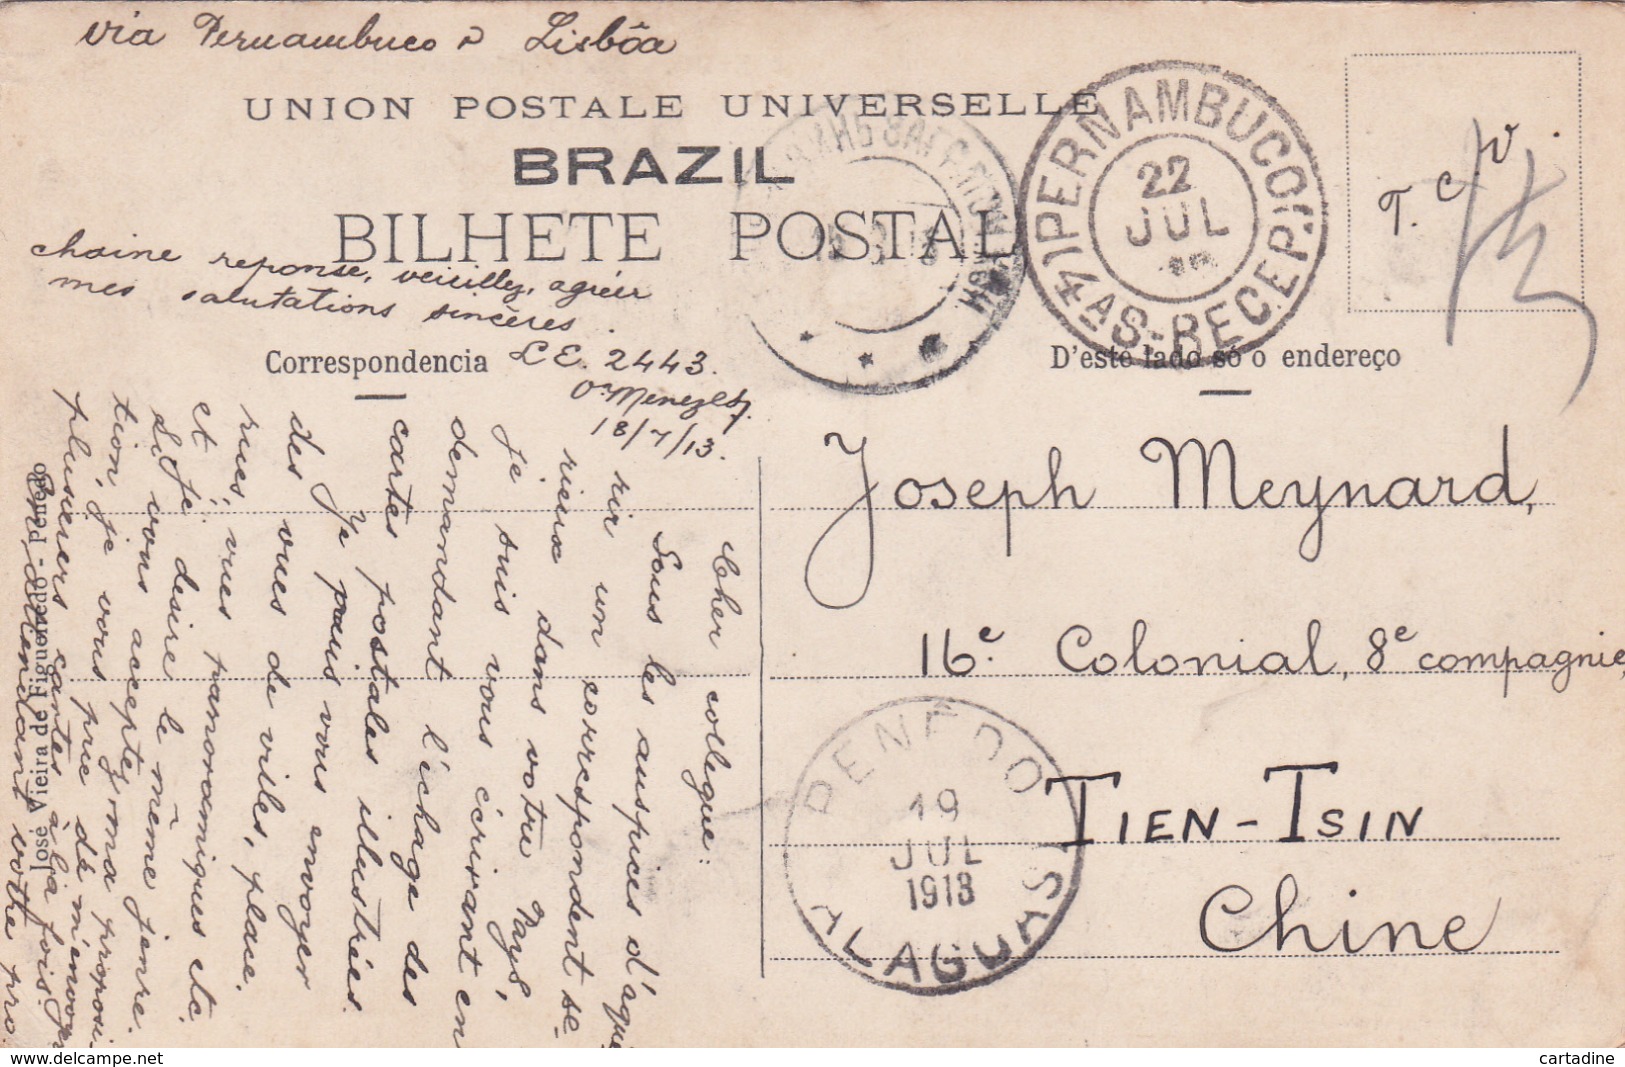 via Pernambuco à Lisbôa
UNION POSTALE UNIVERSELLE
BRAZIL
BILHETE POSTAL
PERNAMBUCO
22
JUL
4ª S-RECEP.
T. C. V.
Correspondencia
D'este lado só o endereço
Joseph Meynard,
16e. Colonial, 8e compagnie,
TIEN-TSIN
Chine
PENEDO
19
JUL
1913
ALAGOAS
Cher collegue:
Sous les auspices d'aque
rir un correspondent sé-
rieux dans votre Pays,
je suis vous écrivant en
demandant l'échage des
cartes postales illustrées.
Je puis vous envoyer
des vues de villes, place.
rues, vues panoramiques etc.
et je desire le même jenre.
Si vous acceptez ma proposi-
tion, je vous prie de m'envoyer
plusieurs cartes à la fois.
En attendant votre pro
chaine reponse, veuillez, agréer
mes salutations sincères.
L E. 2443.
Menezes
18/7/13.
José Vieira de Figueiredo - Penedo
delcampe.net
cartadine